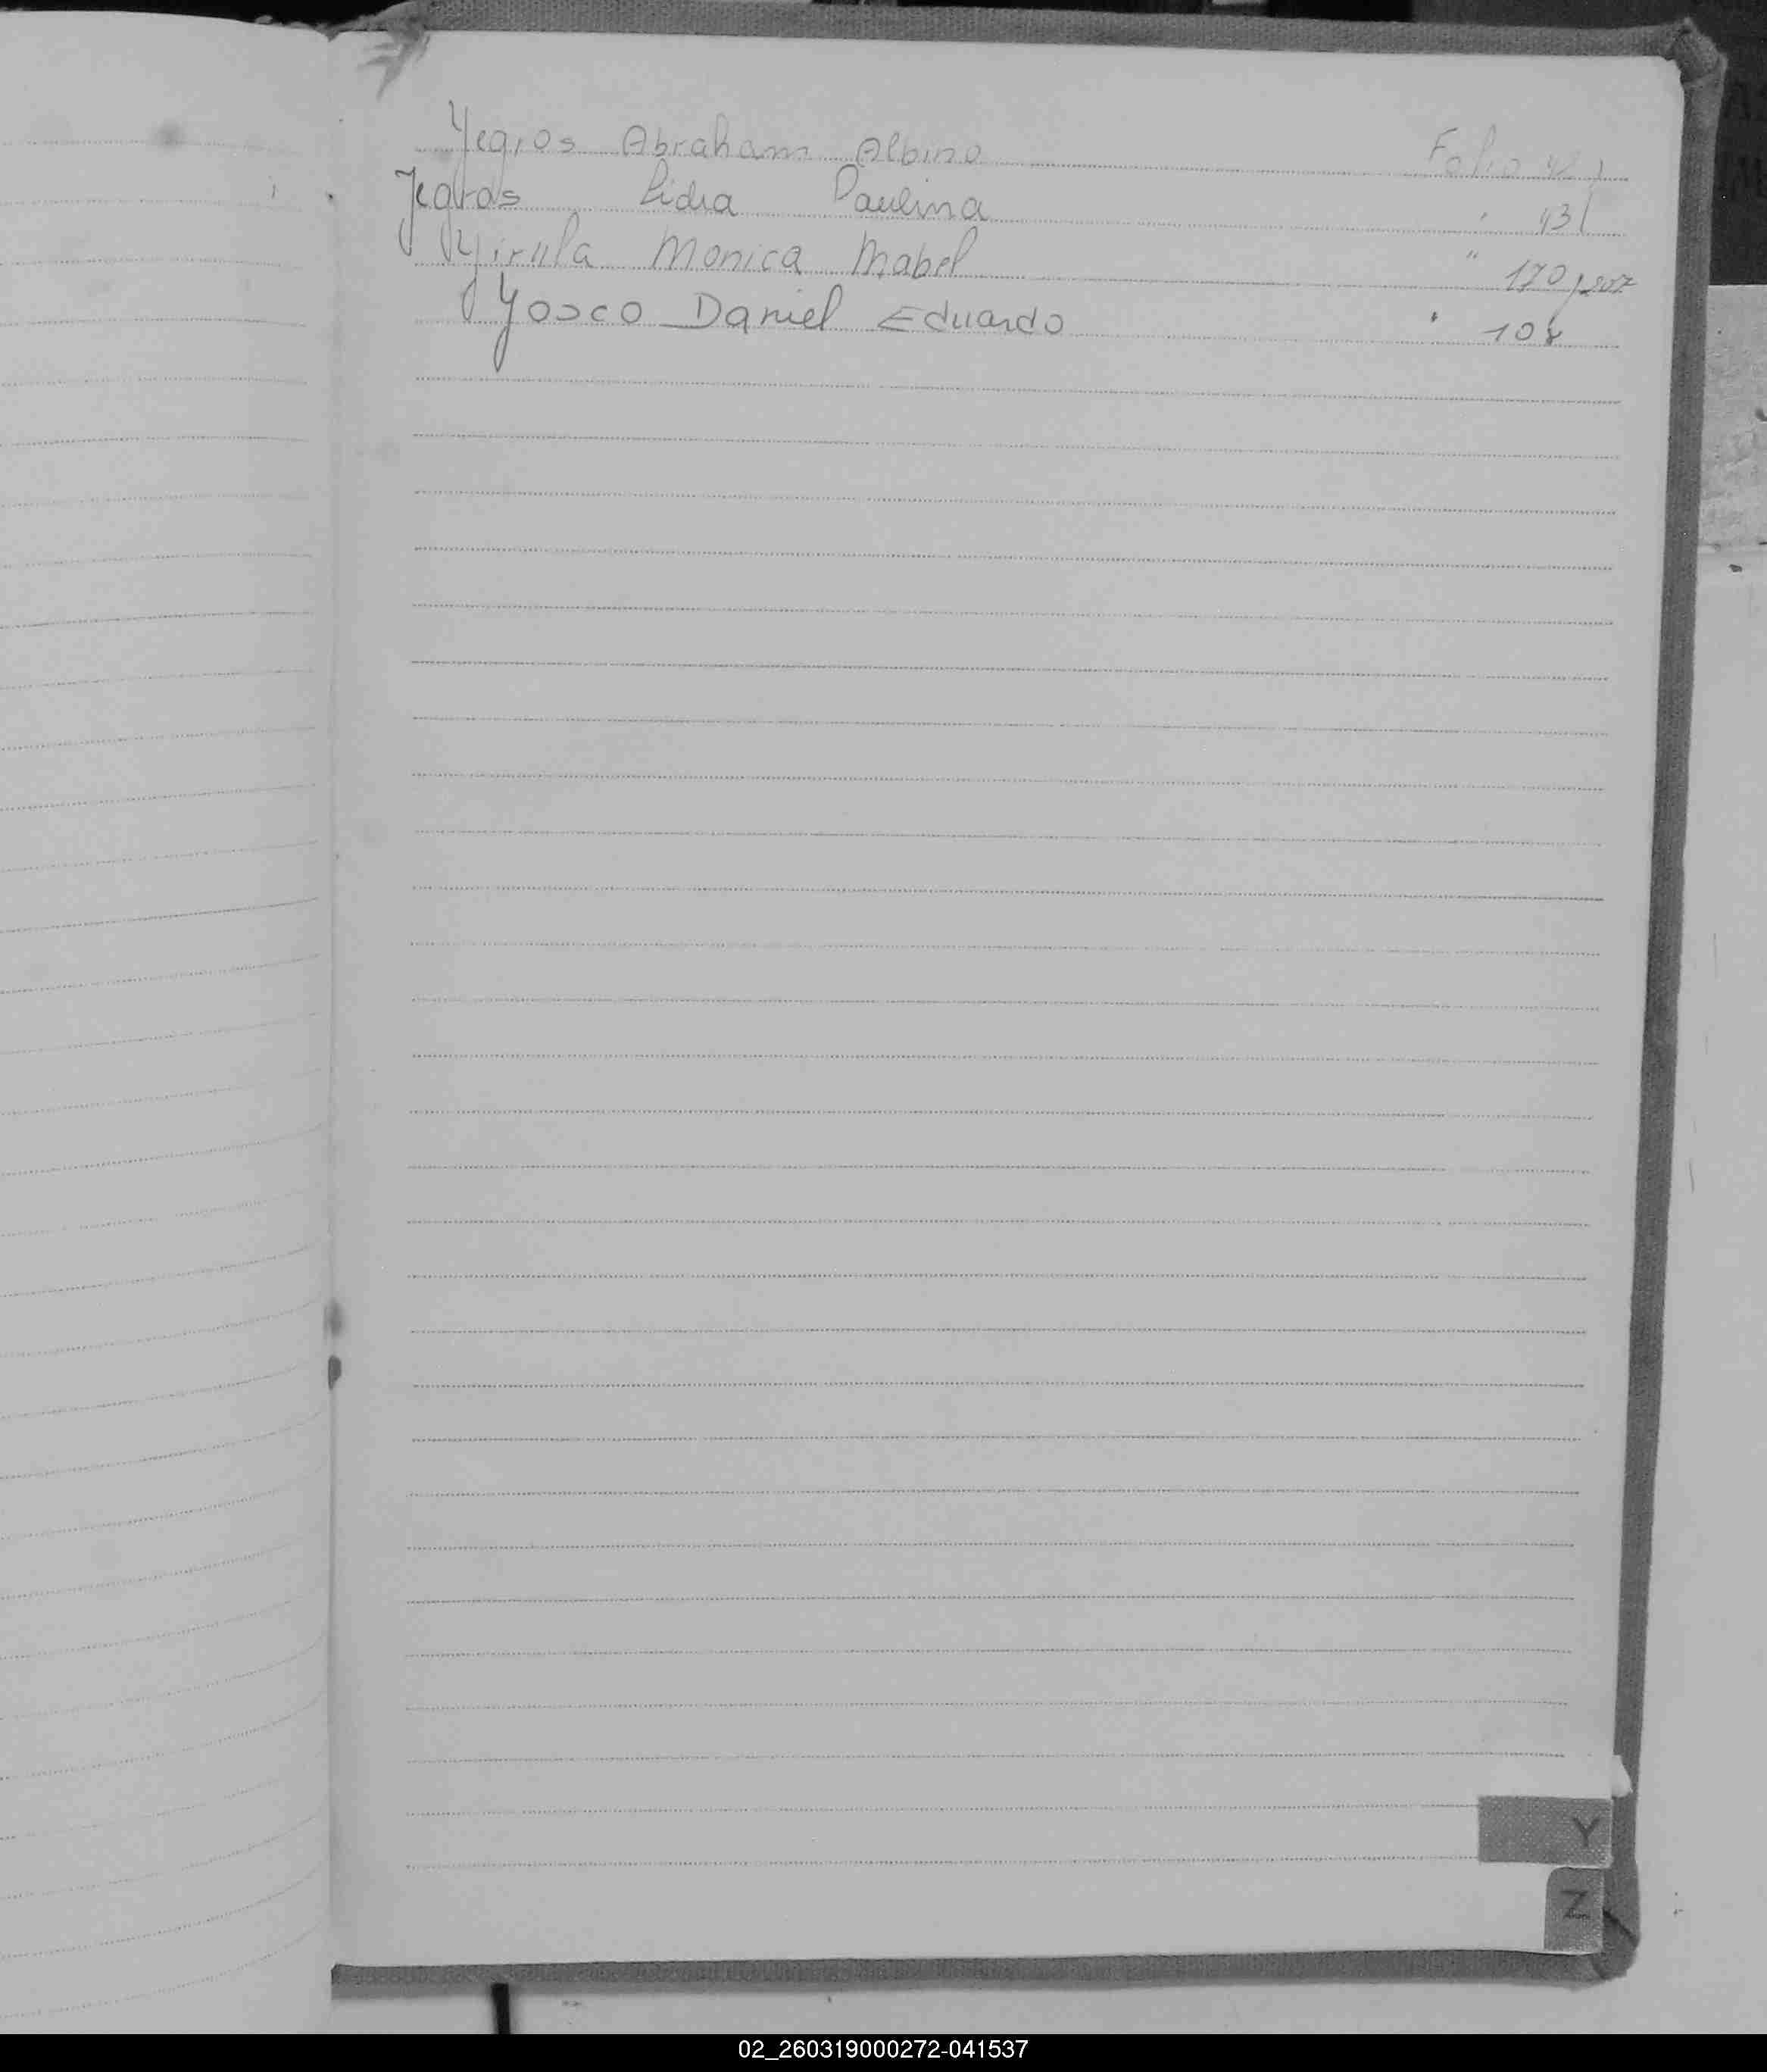 Yegros Abraham Albino Folio
Yegros Lidia Paulina " 131
Monica Mabel " 170
Yosco Daniel Eduardo " 108
Y
Z
02_260319000272-041537